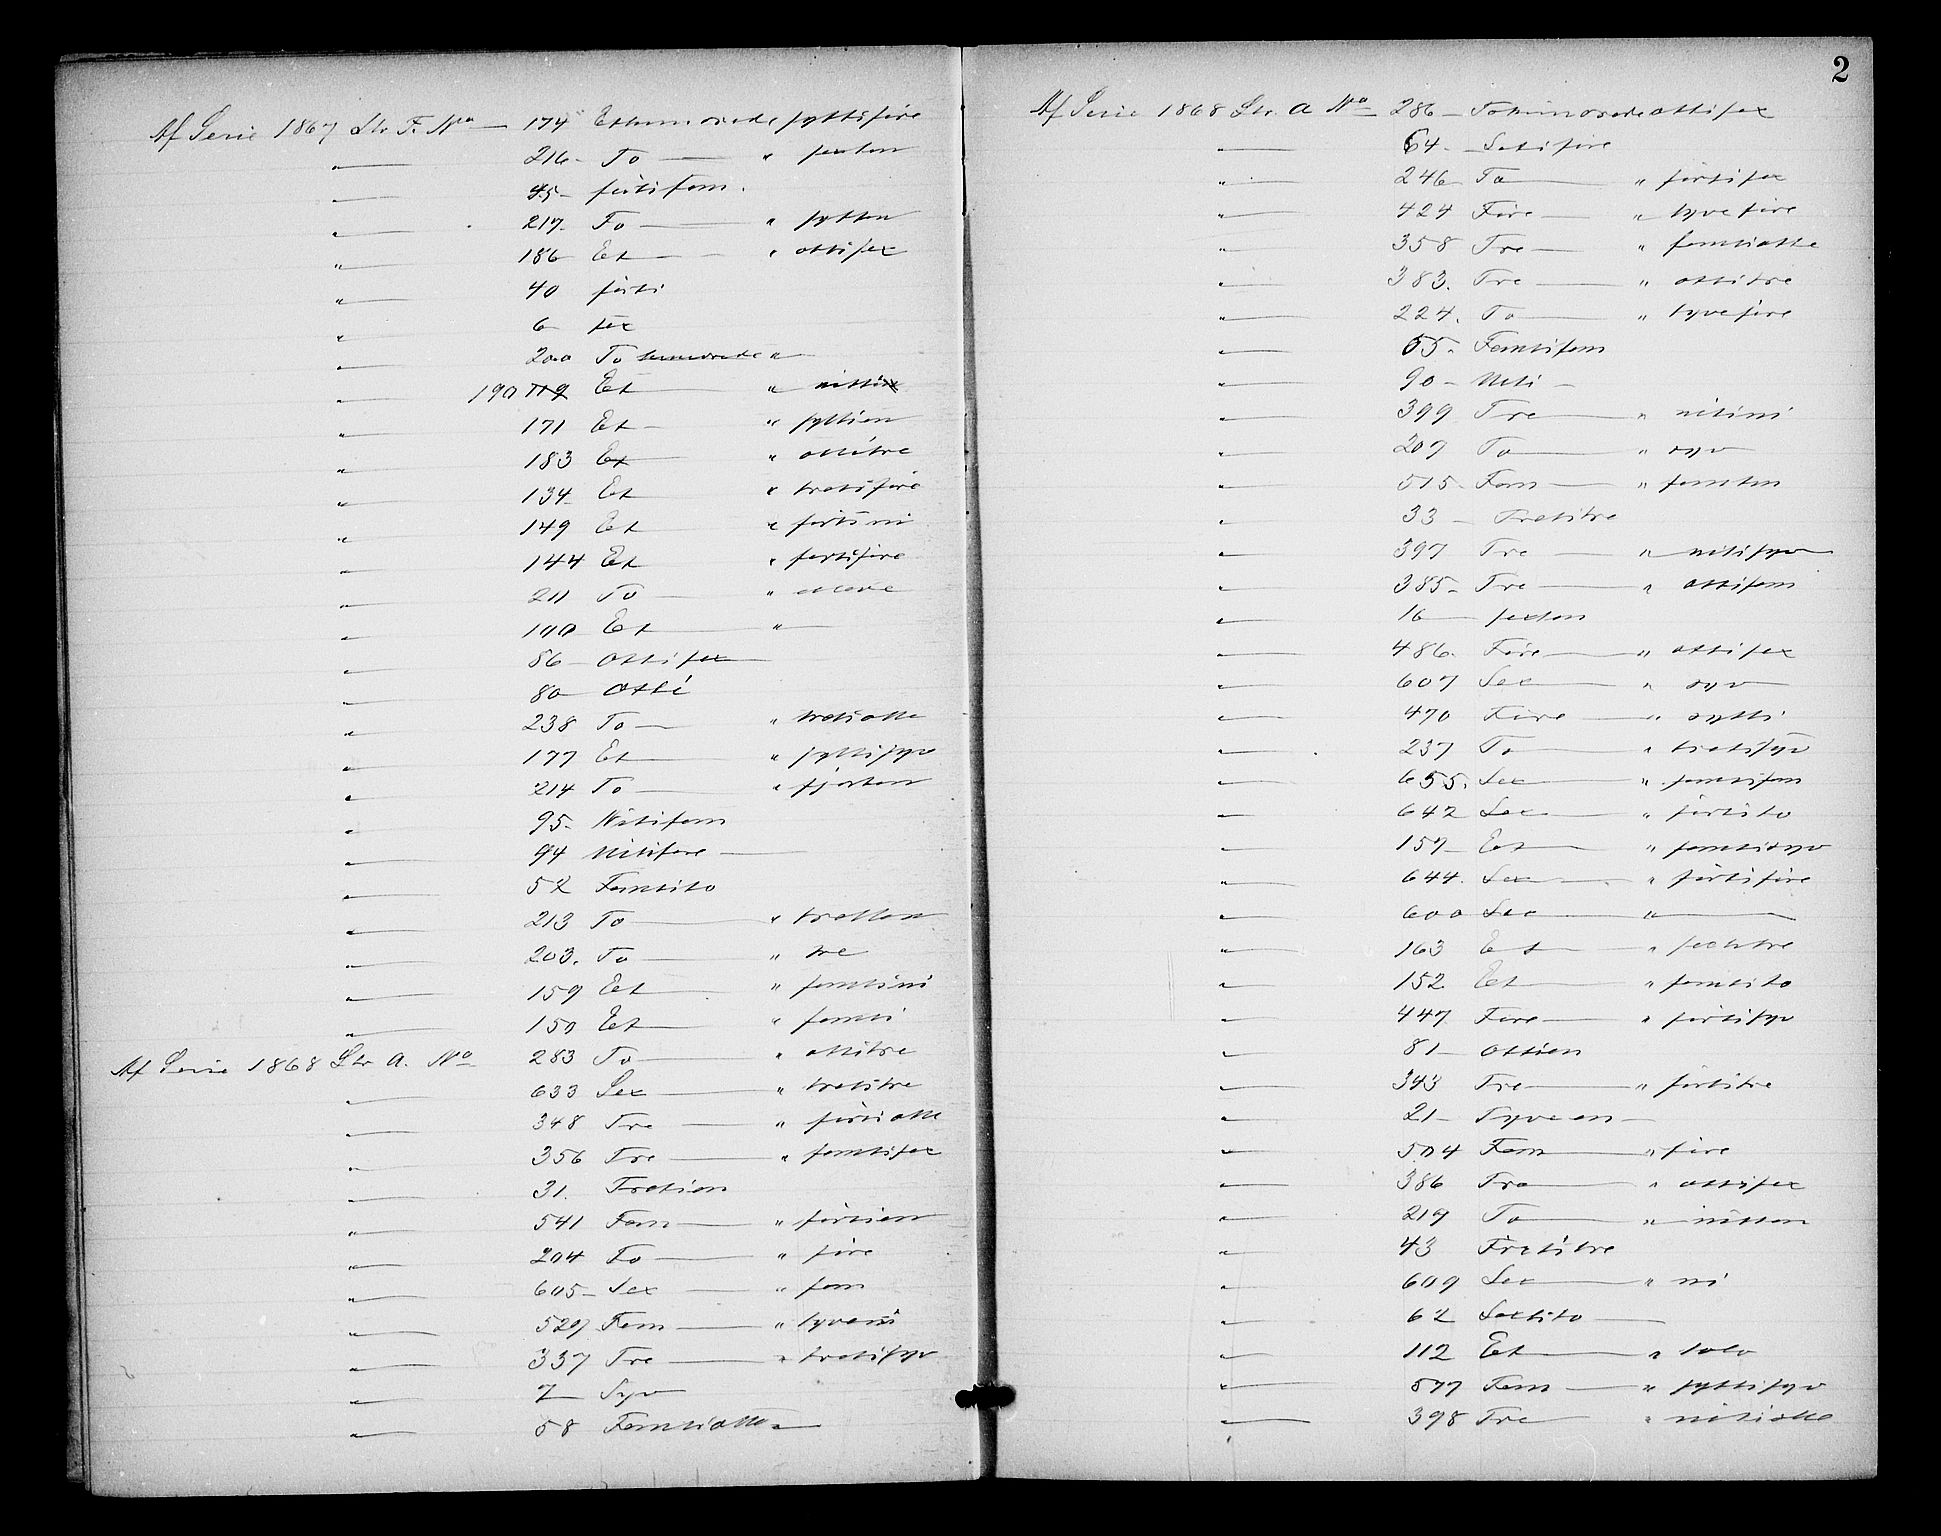 Af Serie 1867 Ltr. F. No — 174 Ethundrede syttifire
" — 216 - To — " sexten
" — 45 - førtifem.
" — 217. To — " sytten
" — 186 Et — " ottisex
" — 40 førti
" — 6 sex
" — 200 To hundrede " —
" — 190 Et — " nitti
" — 171 Et — " syttien
" — 183 Et " ottitre
" — 134 Et " tretifire
" — 149 Et — " førtini
" — 144 Et " førtifire
" — 211 To — " elleve
" — 100 Et — " —
" — 86 - ottisex —
" — 80 Otti
" — 238 To — " trettiotte
" — 177 Et — " syttisyv
" — 214 To — " fjorten
" — 95. Nitifem
" — 94 Nitifire —
" — 52 Femtito
" — 213 To — " tretten
" — 203. To — " tre
" — 159 Et — " femtini
" — 150 Et — " femti
Af Serie 1868 Ltr a. No 283 To — " ottitre
" — 633 Sex — " tretitre
" — 348 Tre — " førtiotte
" — 356 Tre — " femtisex
" — 31. Tretien
" — 541 Fem — " førtien
" — 204 To — " fire
" — 605 - Sex — " fem
" — 529 Fem — " tyveni
" — 337 Tre — " tretisyv
" — 7 — Syv
" — 58 Femtiotte —
2
Af Serie 1868 Ltr. a No 286 - Tohundrede ottisex
" — 64. - Sextifire
" — 246 To — " førtisex
" — 424 Fire — " tyvefire
" — 358 Tre — " femtiotte
" — 383. Tre — " ottitre
" — 224. To — " tyvefire
" — 55. Femtifem
" — 90 - Niti -
" — 399 Tre — " nitini
" — 207 To — " syv
" — 515 - Fem — " femten
" — 33 - Tretitre
" — 397 Tre — " nitisyv
" — 385 - Tre — " ottifem
" — 16 — sexten
" — 486. Fire — " ottisex
" — 607 Sex — " syv
" — 470 Fire — " sytti
" — 237 To — " tretisyv
" — 655. Sex — " femtifem
" — 642 Sex — " førtito
" — 157 Et — " femtisyv
" — 644. Sex — " førtifire
" — 600 Sex — " —
" — 163 Et — " sextitre
" — 152 Et — " femtito
" — 447 Fire — " førtisyv
" — 81 - Ottien
" — 343 Tre — " førtitre
" — 21 - Tyveen -
" — 504 Fem — " fire
" — 386 Tre — " ottisex
" — 219 To — " nitten
" — 43 Førtitre
" — 609 Sex — " ni
" — 62 Sextito —
" — 112 Et — " tolv
" — 577 Fem — " syttisyv
" — 398 Tre — " nitiotte